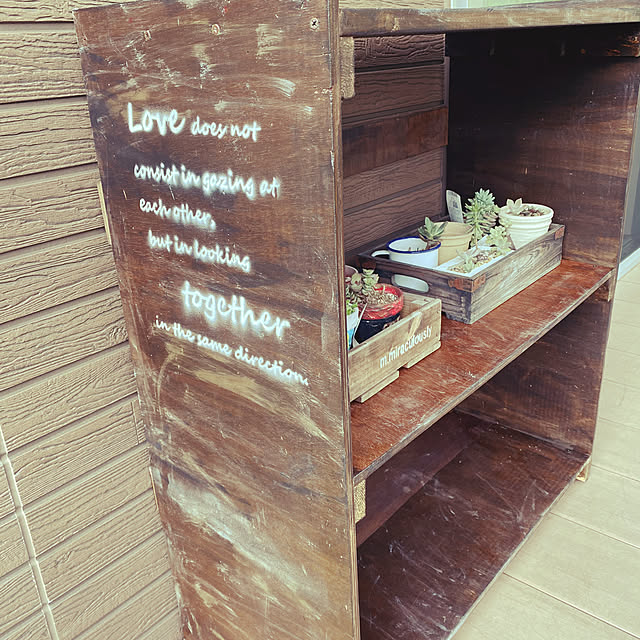 Love does not
consist in gazing at
each other,
but in looking
together
in the same direction.
m.miraculously